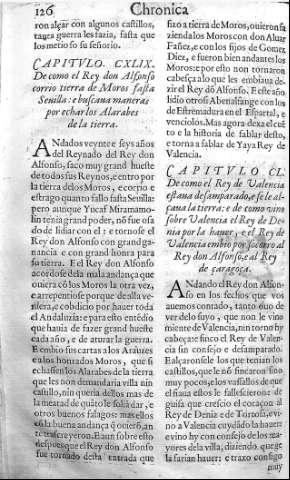 126
Chronica
ron alçar con algunos castillos,
tanta guerra les fazia, fasta que
los metio so su señorio.
CAPITVLO CXLIX.
De como el Rey don Alfonso
corrio tierra de Moros fasta
Seuilla: e buscaua maneras
por echar los Alarabes
de la tierra.
ANdados veynte e seys años
del Reynado del Rey don
Alfonso, faco muy grand hueste
de todas sus Reynos, e entro por
la tierra de los Moros, e corrio e
estrago quanto fallo fasta Seuilla:
pero aunque Yucaf Miramamo-
lin tenia grand poder, nõ fue osa
do de lidiar con el: e tornose el
Rey don Alfonso con grand ga-
nancia e con grand honra para
su tierra. E el Rey don Alfonso
acordose de la mala andança que
ouiera cõ los Moros la otra vez,
e arrepentiose porque de alla ve-
niera, e cobdicio por hauer toda
el Andaluzia: e para esto entẽdio
que hauia de fazer grand hueste
cada año, e de aturar la guerra.
E embio sus cartas a los Araues
e a los honrados Moros, que si
echassen los Alarabes de la tierra
que les non demandaria villa nin
castillo, nin queria dellos mas de
la meatad de quãto le soliã dar, e
otros buenos falagos: mas ellos
cõ la buena andança
E aun sobre esto
despues que el Rey don Alfonso
fue tornado desta entrada que
fizo a tierra de Moros, ouieron fa
zienda los Moros con don Aluar
Fañez, e con los fijos de Gomez
Diez, e fueron bien andantes los
Moros: e por esto non tornaron
cabeça a lo que les embiaua de-
zir el Rey dõ Alfonso. En este año
lidio otrosi Abenalfange con los
de Estremadura en el Espartal, e
venciolos. Mas agora dexa el cuẽ
to e la historia de fablar desto,
e torna a fablar de Yaya Rey de
Valencia.
CAPITVLO CL.
De como el Rey de Valencia
estaua desamparado, e se le al-
çaua la tierra: e de como vino
sobre Valencia el Rey de De-
nia por la hauer, e el Rey de
Valencia embio por socorro al
Rey don Alfonso, e al Rey
de çaragoça.
ANdando el Rey don Alfon-
so en los fechos que vos
auemos contado, tanto ouo de
ver de lo suyo, que non le vino
miente de Valencia, nin torno hy
cabeça: e finco el Rey de Valen-
cia sin consejo e desamparado.
E alçaronsele los que tenian los
castillos, que le nõ fincaron sino
muy pocos, e los vassallos de que
el fiaua ellos le fallescieron: de
guisa que crescio el coraçon al
Rey de Denia e de Tortosa, e vi-
no a Valencia cuydãdo la hauer:
e vino hy con consejo de los ma-
yores de la villa, diziendo, que ge
la farian hauer: e traxo consigo
muy